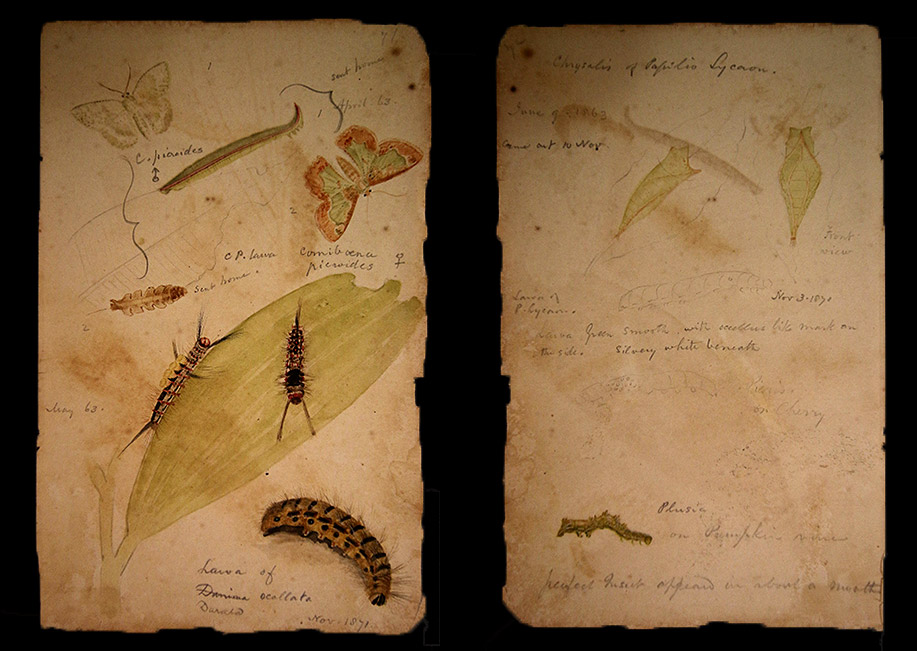 1
sent home
1 April. 63.
C. picroides
♂
2
C P. larva
sent home.
Comibœna
picroides ♀
2
May 63.
Larva of
ocellata
Nov. 1871
Chrysalis of Papilio Lycaon.
June 9. 1863
Came out 10 Nov
Front
view
Larva of
P. Lycaon.
Nov 3. 1871
Larva Green smooth, with ocellus like mark on
the side. Silvery white beneath
on Cherry
Plusia
on Pumpkin vine
perfect Insect appeared in about a month